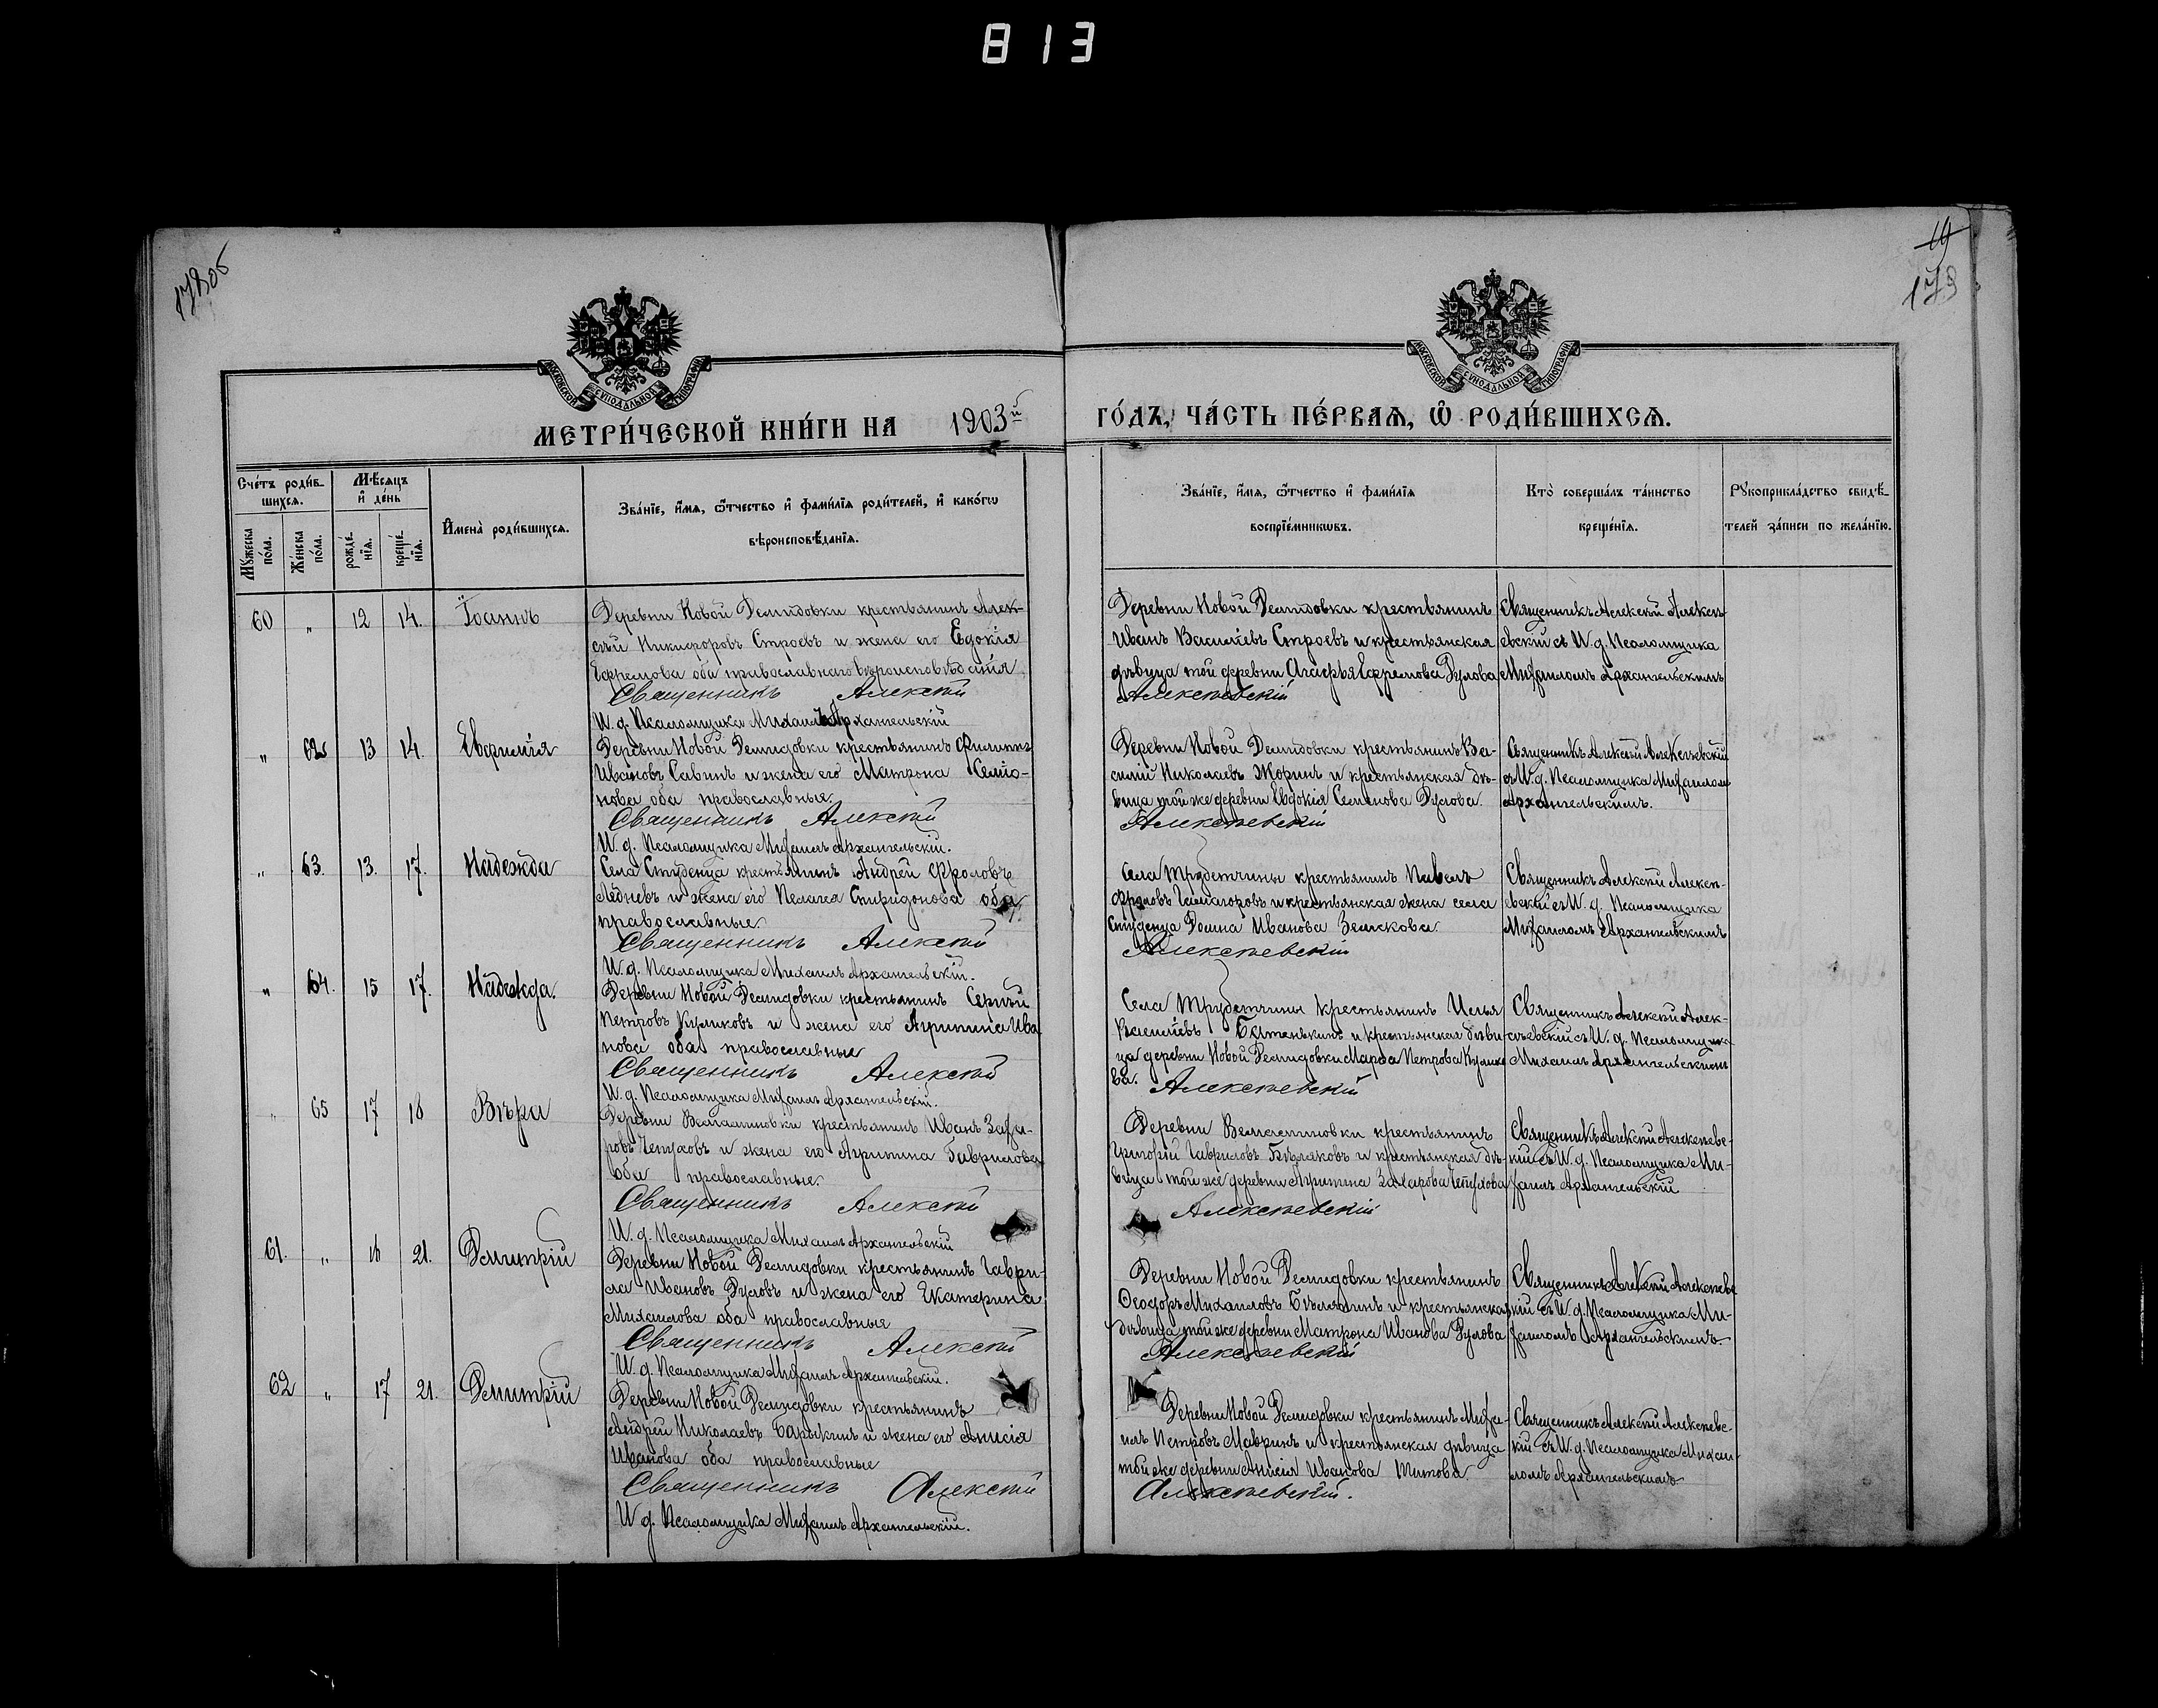 813
178об
19
179
МОСКОВСКОЙ СѴНОДАЛЬНОЙ ТИПОГРАФІИ
МОСКОВСКОЙ СѴНОДАЛЬНОЙ ТИПОГРАФІИ
МЕТРИ́ЧЕСКОЙ КНИ́ГИ НА 1903й ГО́ДЪ, ЧА́СТЬ ПЕ́РВАѦ, Ѡ РОДИ́ВШИХСѦ.
Сче́тъ роди́вшихсѧ.
Мѣ́сѧцъ и҆ де́нь
Мꙋ́жеска по́ла.
Же́нска по́ла.
рожде́нїѧ.
креще́нїѧ.
И҆мена̀ роди́вшихсѧ.
Зва́нїе, и҆́мѧ, ѻ҆́тчество и҆ фами́лїѧ роди́телей, и҆ како́гѡ
вѣроисповѣ́данїѧ.
Зва́нїе, и҆́мѧ, ѻ҆́тчество и҆ фами́лїѧ
воспрїе́мникѡвъ.
Кто̀ соверша́лъ та́инство
креще́нїѧ.
Рꙋкоприкла́дство свидѣ́-
телей за́писи по жела́нїю.
60 " 12 14. Іоаннъ
Деревни Новой Демидовки крестьянинъ Алек-
сѣй Никифоровъ Строевъ и жена его Евдокія
Ефремова оба православнаго вѣроисповѣданія
Священникъ Алексѣй
И. д. Псаломщика Михаилъ Архангельскій
Деревни Новой Демидовки крестьянинъ
Иванъ Васильевъ Строевъ и крестьянская
дѣвица той деревни Агафья Ефремова Рулова
Алексѣевскій
Священникъ Алексѣй Алексѣ-
евскій съ И. д. Псаломщика
Михаиломъ Архангельскимъ
" 62 13 14. Евфимія
Деревни Новой Демидовки крестьянинъ Филиппъ
Ивановъ Савинъ и жена его Матрона Семіо-
нова оба православные.
Священникъ Алексѣй
И. д. Псаломщика Михаилъ Архангельскій.
Деревни Новой Демидовки крестьянинъ Ва-
силій Николаевъ Жоринъ и крестьянская дѣ-
вица той же деревни Евдокія Семенова Рулова.
Алексѣевскій
Священникъ Алексѣй Алексѣевскій
съ И. д. Псаломщика Михаиломъ
Архангельскимъ.
" 63. 13. 17. Надежда
Села Студенца крестьянинъ Андрей Фроловъ
Ледневъ и жена его Пелагея Спиридонова оба
православные.
Священникъ Алексѣй
И. д. Псаломщика Михаилъ Архангельскій.
Села Трубетчины крестьянинъ Павелъ
Фроловъ и крестьянская жена села
Студенца Домна Иванова Земскова
Алексѣевскій
Священникъ Алексѣй Алексѣ-
евскій съ И. д. Псаломщика
Михаиломъ Архангельскимъ
" 64. 15 17. Надежда.
Деревни Новой Демидовки крестьянинъ Сергѣй
Петровъ Куликовъ и жена его Агрипина Ива
нова оба православные
Священникъ Алексѣй
И. д. Псаломщика Михаилъ Архангельскій.
Села Трубетчины крестьянинъ Илья
Васильевъ и крестьянская дѣви-
ца деревни Новой Демидовки Марфа Петрова Кулико
ва. Алексѣевскій
Священникъ Алексѣй Алек-
сѣевскій съ И. д. Псаломщика
Михаилъ Архангельскимъ
" 65 17 18 Вѣра
Деревни крестьянинъ Иванъ Заха-
ровъ и жена его Агрипина Гаврилова
оба православные.
Священникъ Алексѣй
И. д. Псаломщика Михаилъ Архангельскій
Деревни крестьянинъ
Григорій Гавриловъ Бѣляковъ и крестьянская дѣ-
вица той же деревни Агрипина Захарова
Алексѣевскій
Священникъ Алексѣй Алексѣевс-
кій съ И. д. Псаломщика Ми-
хаилъ Архангельскій
61. " 18 21. Димитрій
Деревни Новой Демидовки крестьянинъ Гаври-
ла Ивановъ Руловъ и жена его Екатерина
Михаилова оба православные
Священникъ Алексѣй
И. д. Псаломщика Михаилъ Архангельскій.
Деревни Новой Демидовки крестьянинъ
Ѳеодоръ Михаиловъ и крестьянская
дѣвица той же деревни Матрона Иванова Рулова
Алексѣевскій
Священникъ Алексѣй Алексѣевс
кій съ И. д. Псаломщика Ми-
хаиломъ Архангельскимъ.
62 " 17 21. Димитрій
Деревни Новой Демидовки крестьянинъ
Андрей Николаевъ Барыкинъ и жена его Анисія
Иванова оба православные
Священникъ Алексѣй
И. д. Псаломщика Михаилъ Архангельскій.
Деревни Новой Демидовки крестьянинъ Миха-
илъ Петровъ Мавринъ и крестьянская дѣвица
той же деревни Анисія Иванова Титова
Алексѣевскій.
Священникъ Алексѣй Алексѣевс-
кій съ И. д. Псаломщика Михаи-
ломъ Архангельскимъ